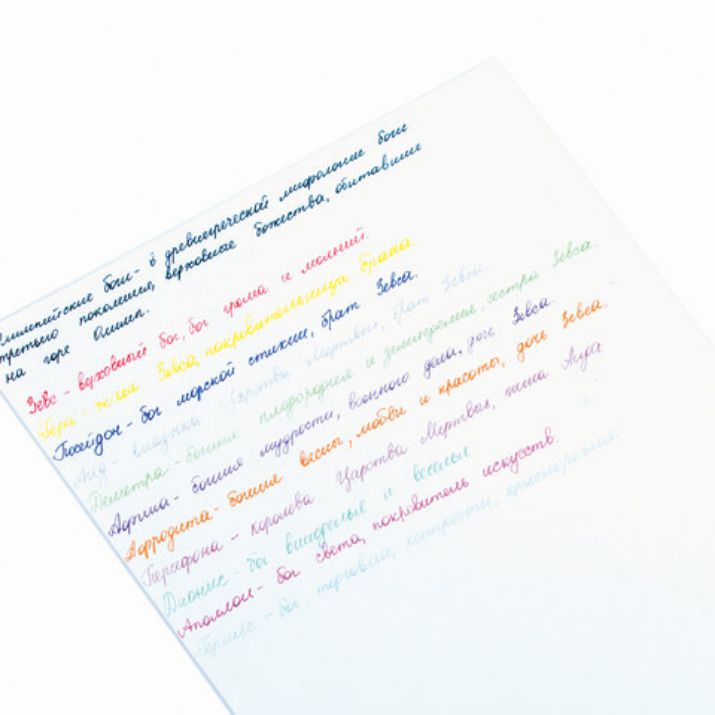 Олимпийские боги - в древнегреческой мифологии боги
третьего поколения, верховные божества, обитавшие
на горе Олимп.
Зевс - верховный бог, бог грома и молний.
Гера - жена Зевса, покровительница брака.
Посейдон - бог морской стихии, брат Зевса.
Аид - владыка Царства Мертвых, брат Зевса.
Деметра - богиня плодородия и земледелия, сестра Зевса.
Афина - богиня мудрости, военного дела, дочь Зевса.
Афродита - богиня весны, любви и красоты, дочь Зевса.
Персефона - королева Царства Мертвых, жена Аида.
Дионис - бог виноделия и веселья
Аполлон - бог света, покровитель искусств.
Гермес - бог торговли, хитрости, красноречия